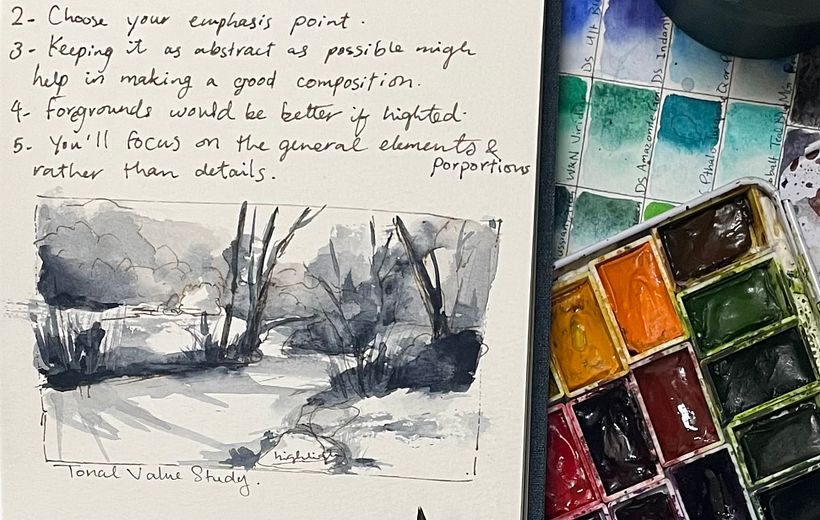 2- Choose your emphasis point.
3- Keeping it as abstract as possible migh
help in making a good composition.
4- Forgrounds would be better if lighted.
5- You'll focus on the general elements &
rather than details. porportions
highlight
Tonal Value Study.
DS Ult
DS Indant
W&N Viridian
DS Amazonite
Cobalt Teal